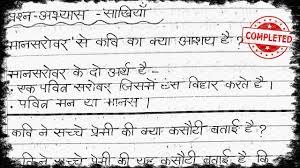 प्रश्न-अभ्यास - साखियाँ
COMPLETED
'मानसरोवर' से कवि का क्या आशय है ?
मानसरोवर के दो अर्थ है -
- एक पवित्र सरोवर जिसमें हंस विहार करते है ।
- पवित्र मन या मानस ।
कवि ने सच्चे प्रेमी की क्या कसौटी बताई है ?
कवि ने सच्चे प्रेमी की यह कसौटी बताई है